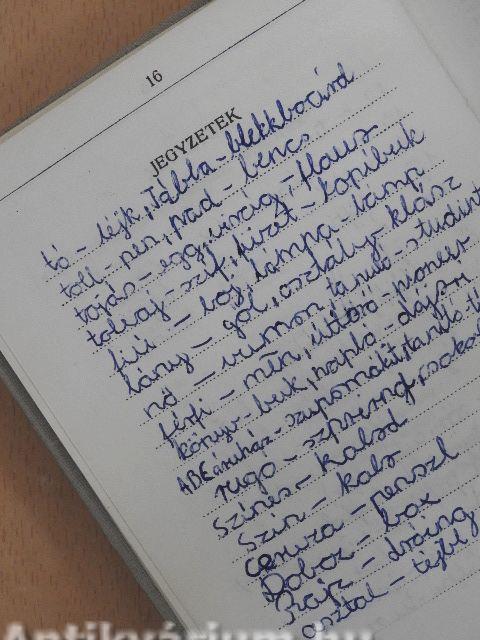 16
JEGYZETEK
tó - léjk, Tábla - blekkboárd
toll - pen, pad - bencs
tojás - egg, virág - flaur
tolvaj - szif, füzet - kopibuk
fiú - boj, lámpa - lámp
lány - göl, osztály - klász
nő - vumon tanuló - student
férfi - mén, úttörő - pioneer
könyv - buk, napló - dájöri
ABCáruház - szupomakit, tanító
rugó - szpring, csokol
színes - kalöd
Szin - kalö
ceruza - penszl
Doboz - box
Rajz - dróing
asztal - tejbl
Antikvárium.hu